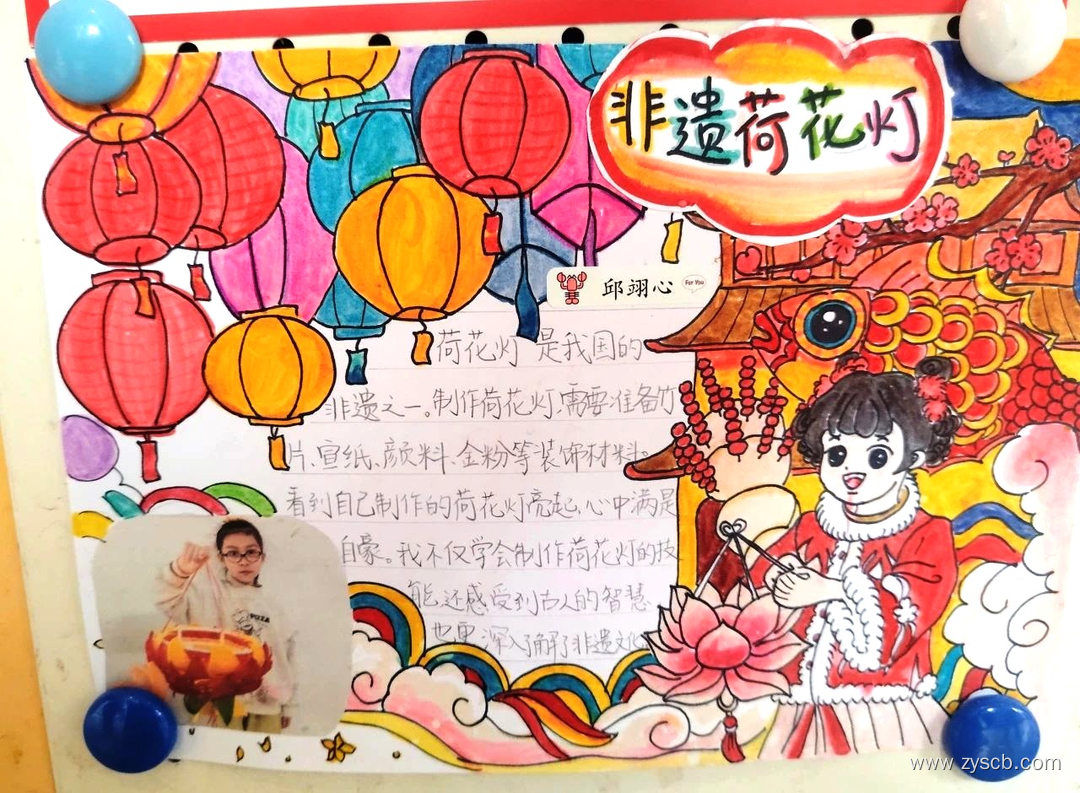 非遗荷花灯
邱翊心
For You
荷花灯是我国的
非遗之一。制作荷花灯,需要准备竹
片、宣纸、颜料、金粉等装饰材料。
看到自己制作的荷花灯亮起,心中满是
自豪。我不仅学会制作荷花灯的技
能,还感受到古人的智慧
也更深入了解了非遗文化
www.zyscb.com